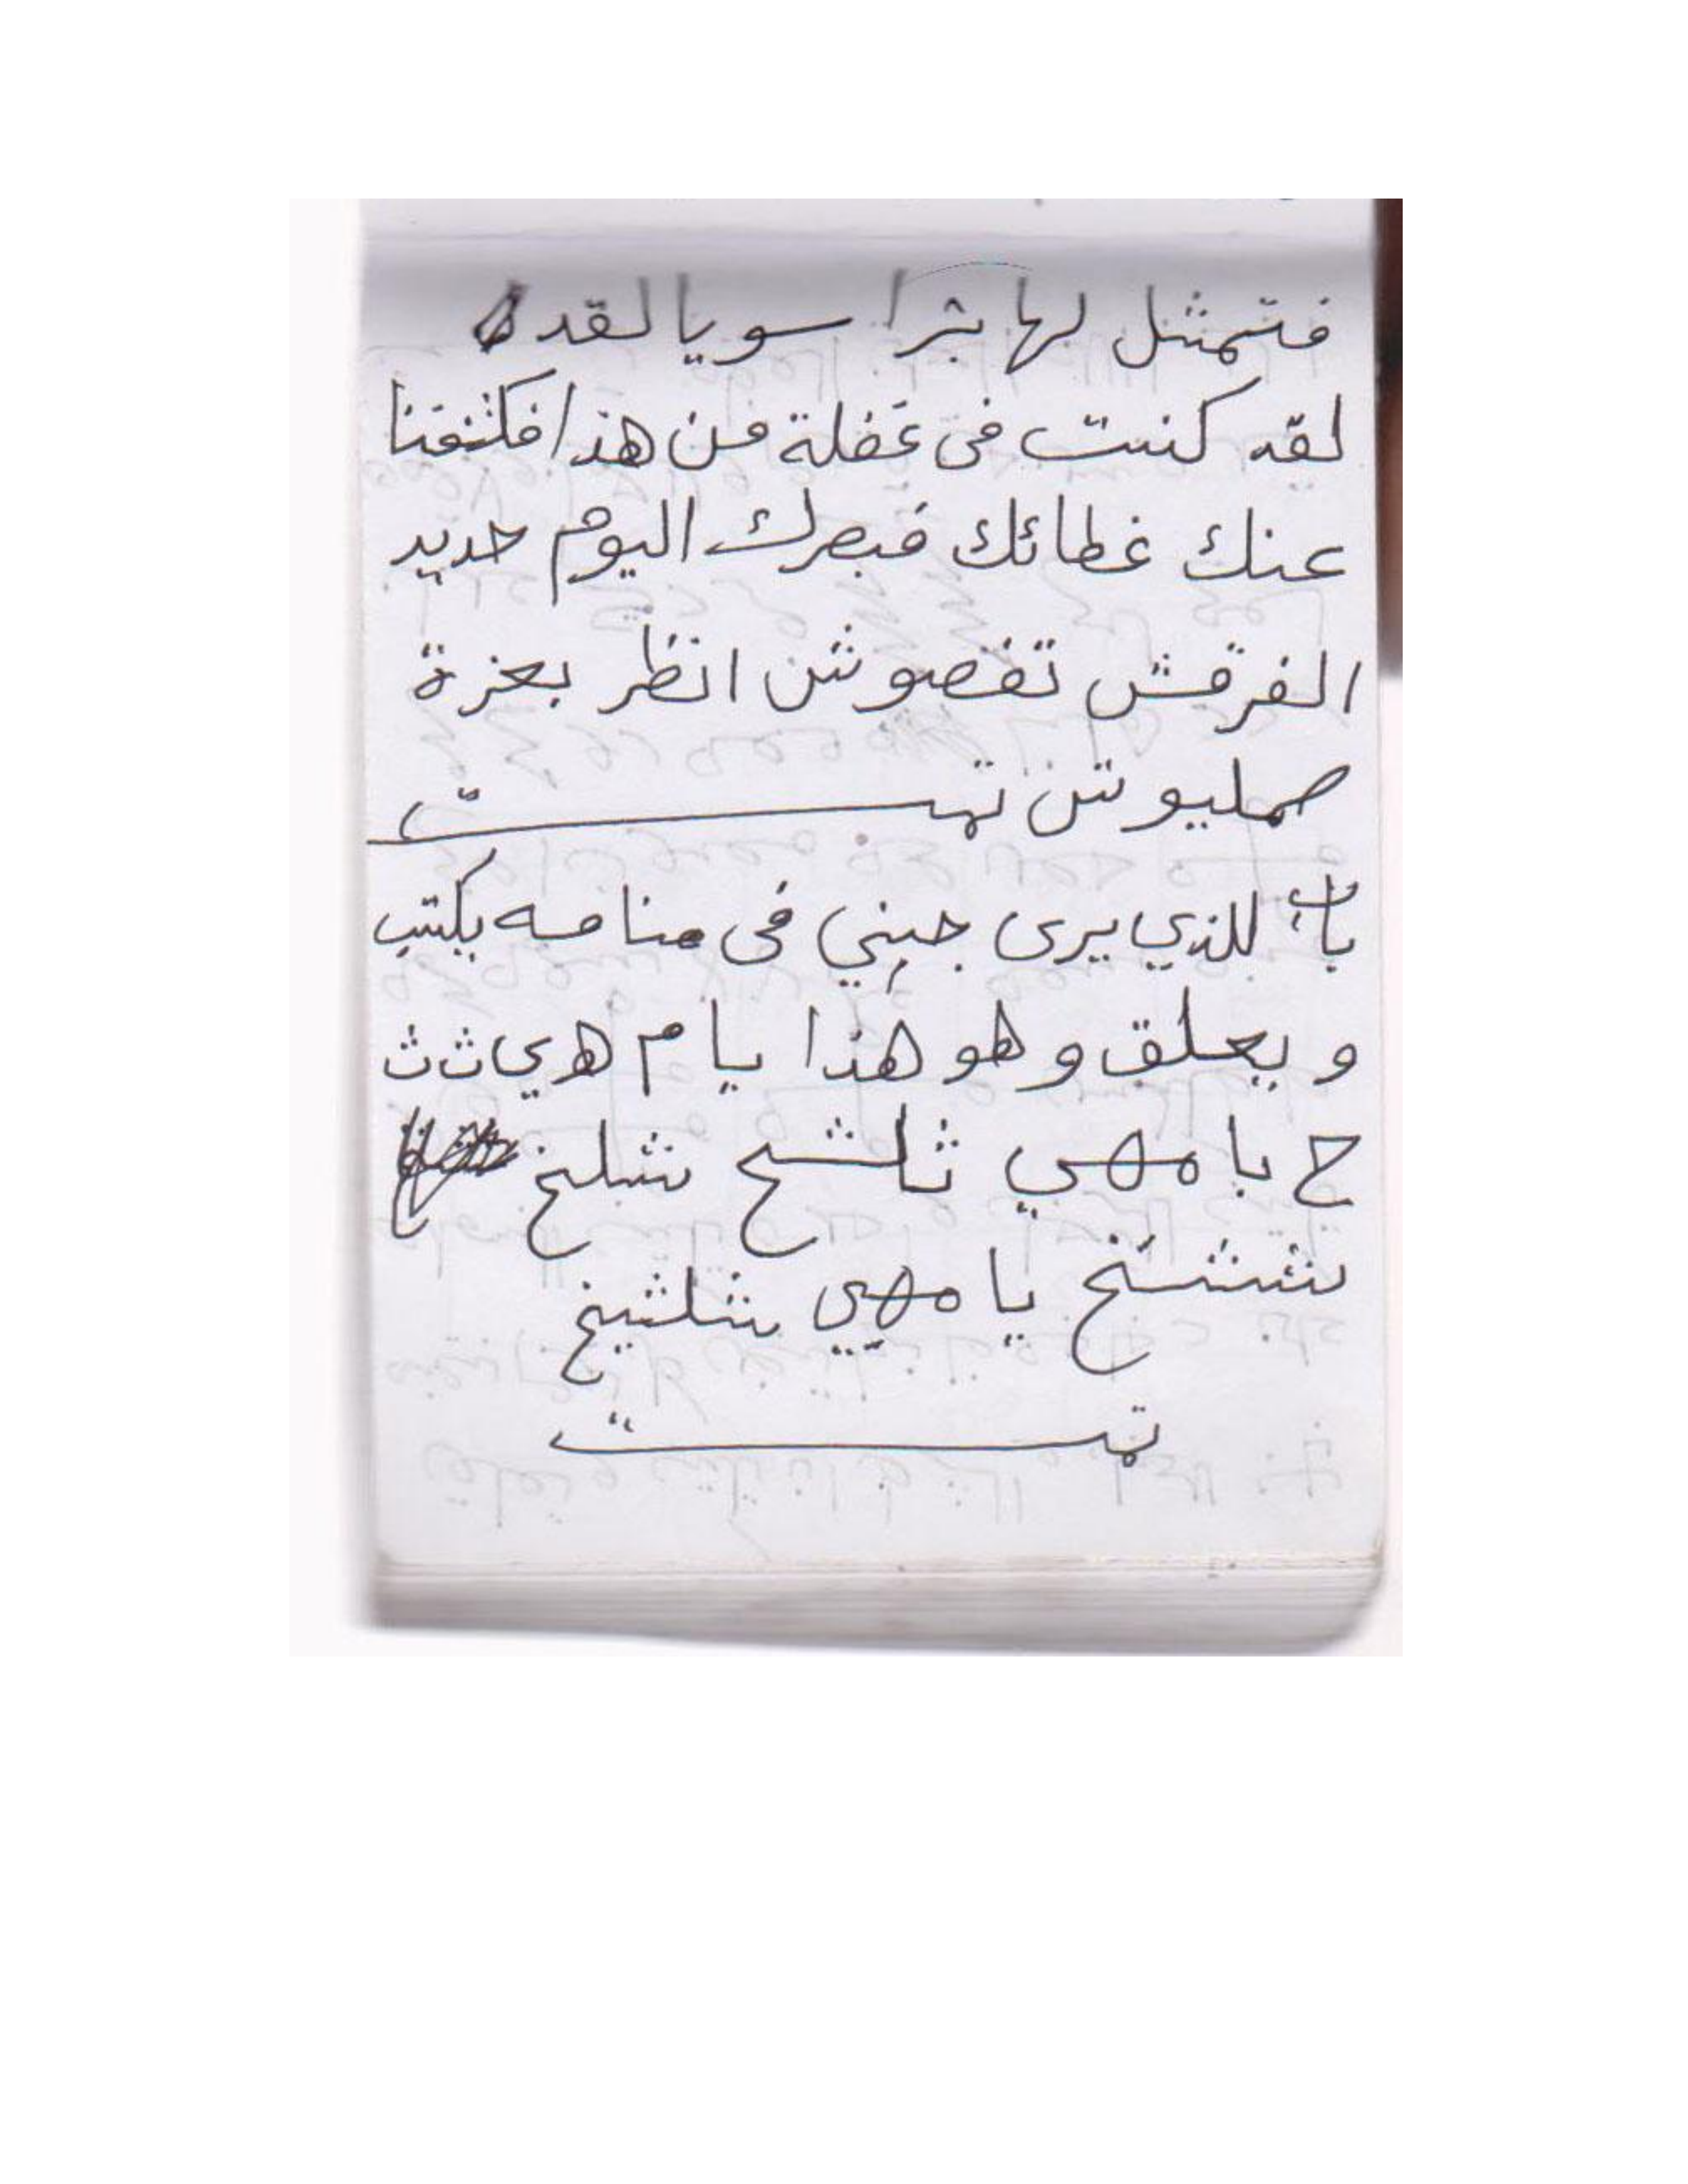 فتمثل لها بشرا سويا لقد
لقد كنت فى غفلة من هذا فكشفنا
عنك غطائك فبصرك اليوم حديد
الفرقش تفصوش انظر بعزة
صمليوش تمت
باب للذي يرى جني فى منامه يكتب
و يعلق و هو هذا يا م هي ث ث
ح يا مهي ثلشح شلخ
ششخ يا مهي شلشيخ
تمت